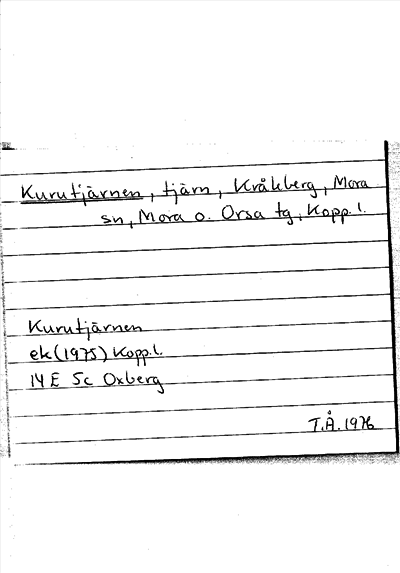 Kurutjärnen, tjärn, Kråkberg, Mora
sn, Mora o. Orsa tg, Kopp. l.
Kurutjärnen
ek (1975) Kopp. l.
14 E 5c Oxberg
T.Å. 1976